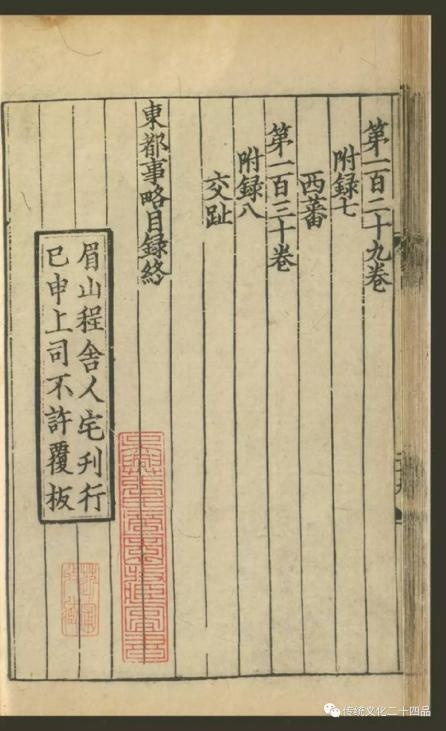 第一百二十九卷
附録七
西蕃
第一百三十卷
附録八
交趾
東都事略目録終
眉山程舍人宅刋行
已申上司不許覆板
传统文化二十四品